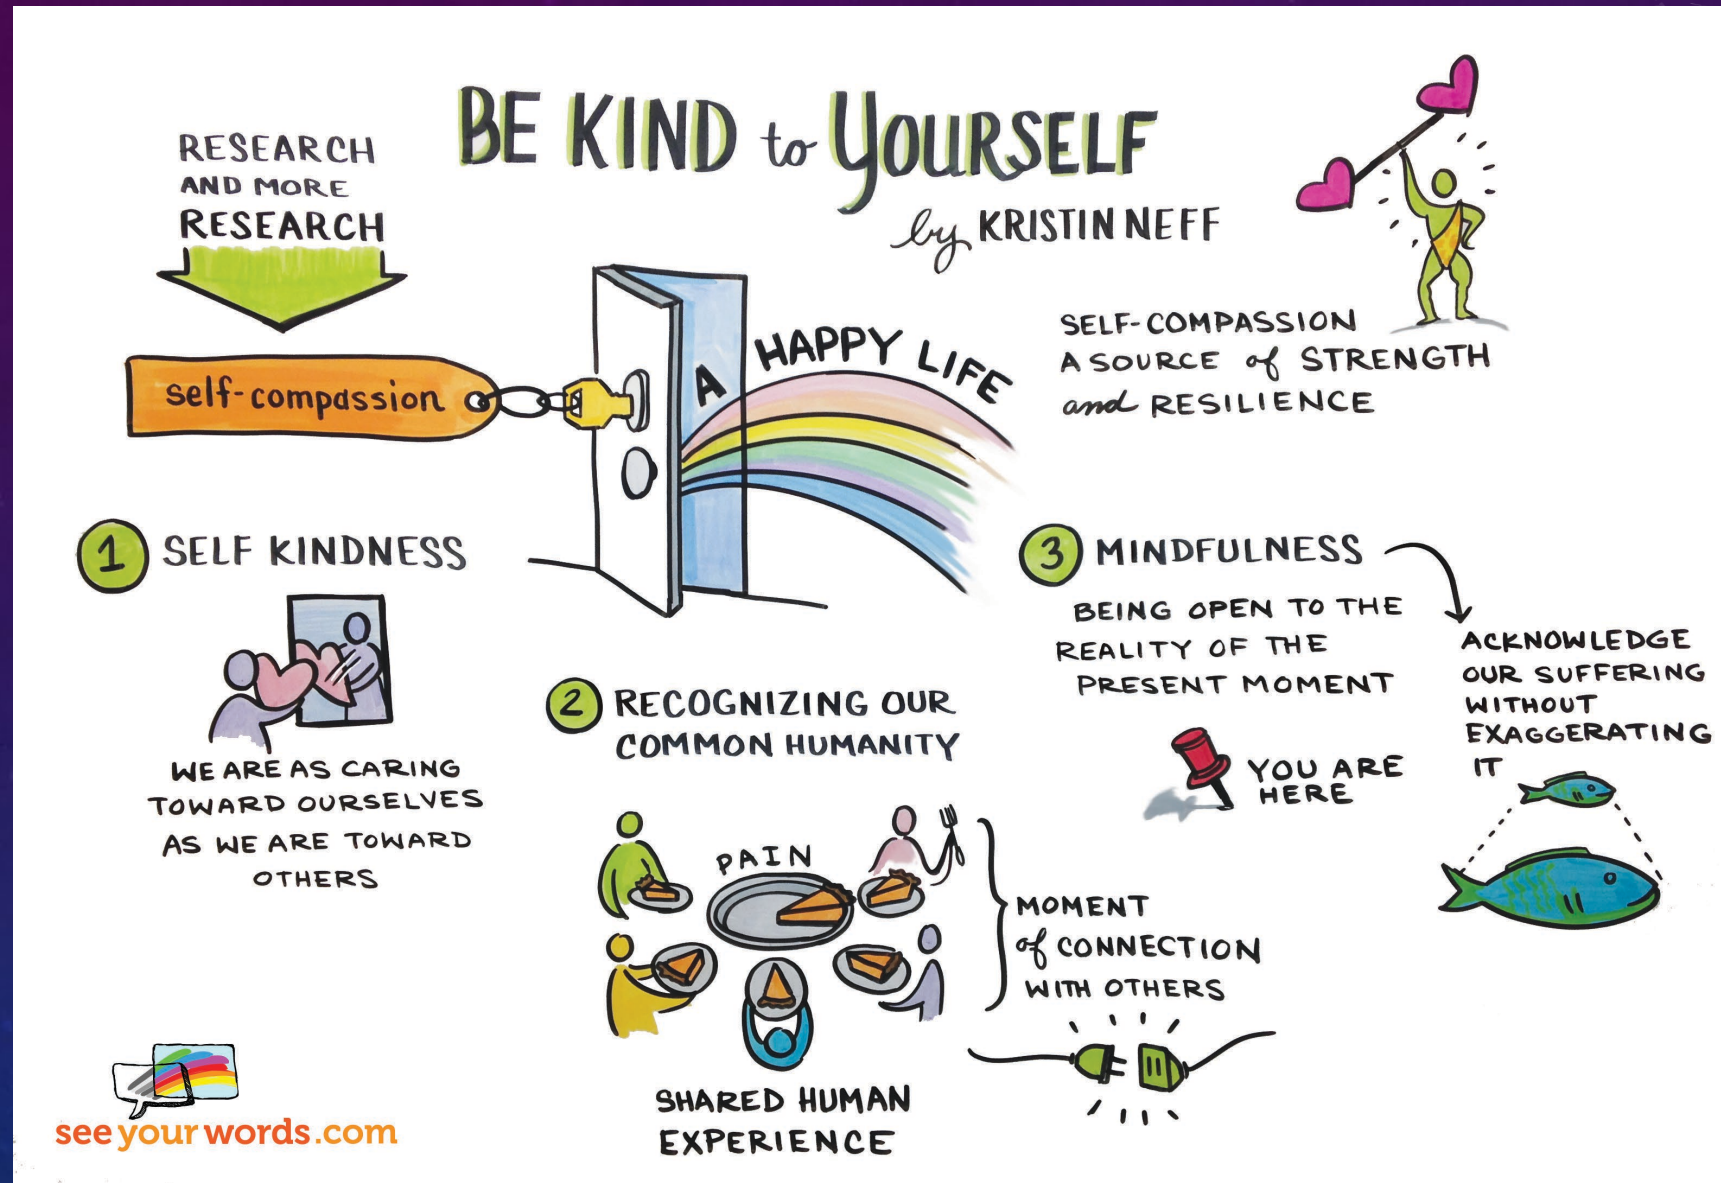 BE KIND to YOURSELF
by KRISTIN NEFF
RESEARCH
AND MORE
RESEARCH
self-compassion
A HAPPY LIFE
SELF-COMPASSION
A SOURCE of STRENGTH
and RESILIENCE
1 SELF KINDNESS
WE ARE AS CARING
TOWARD OURSELVES
AS WE ARE TOWARD
OTHERS
2 RECOGNIZING OUR
COMMON HUMANITY
PAIN
MOMENT
of CONNECTION
WITH OTHERS
SHARED HUMAN
EXPERIENCE
3 MINDFULNESS
BEING OPEN TO THE
REALITY OF THE
PRESENT MOMENT
YOU ARE
HERE
ACKNOWLEDGE
OUR SUFFERING
WITHOUT
EXAGGERATING
IT
seeyourwords.com